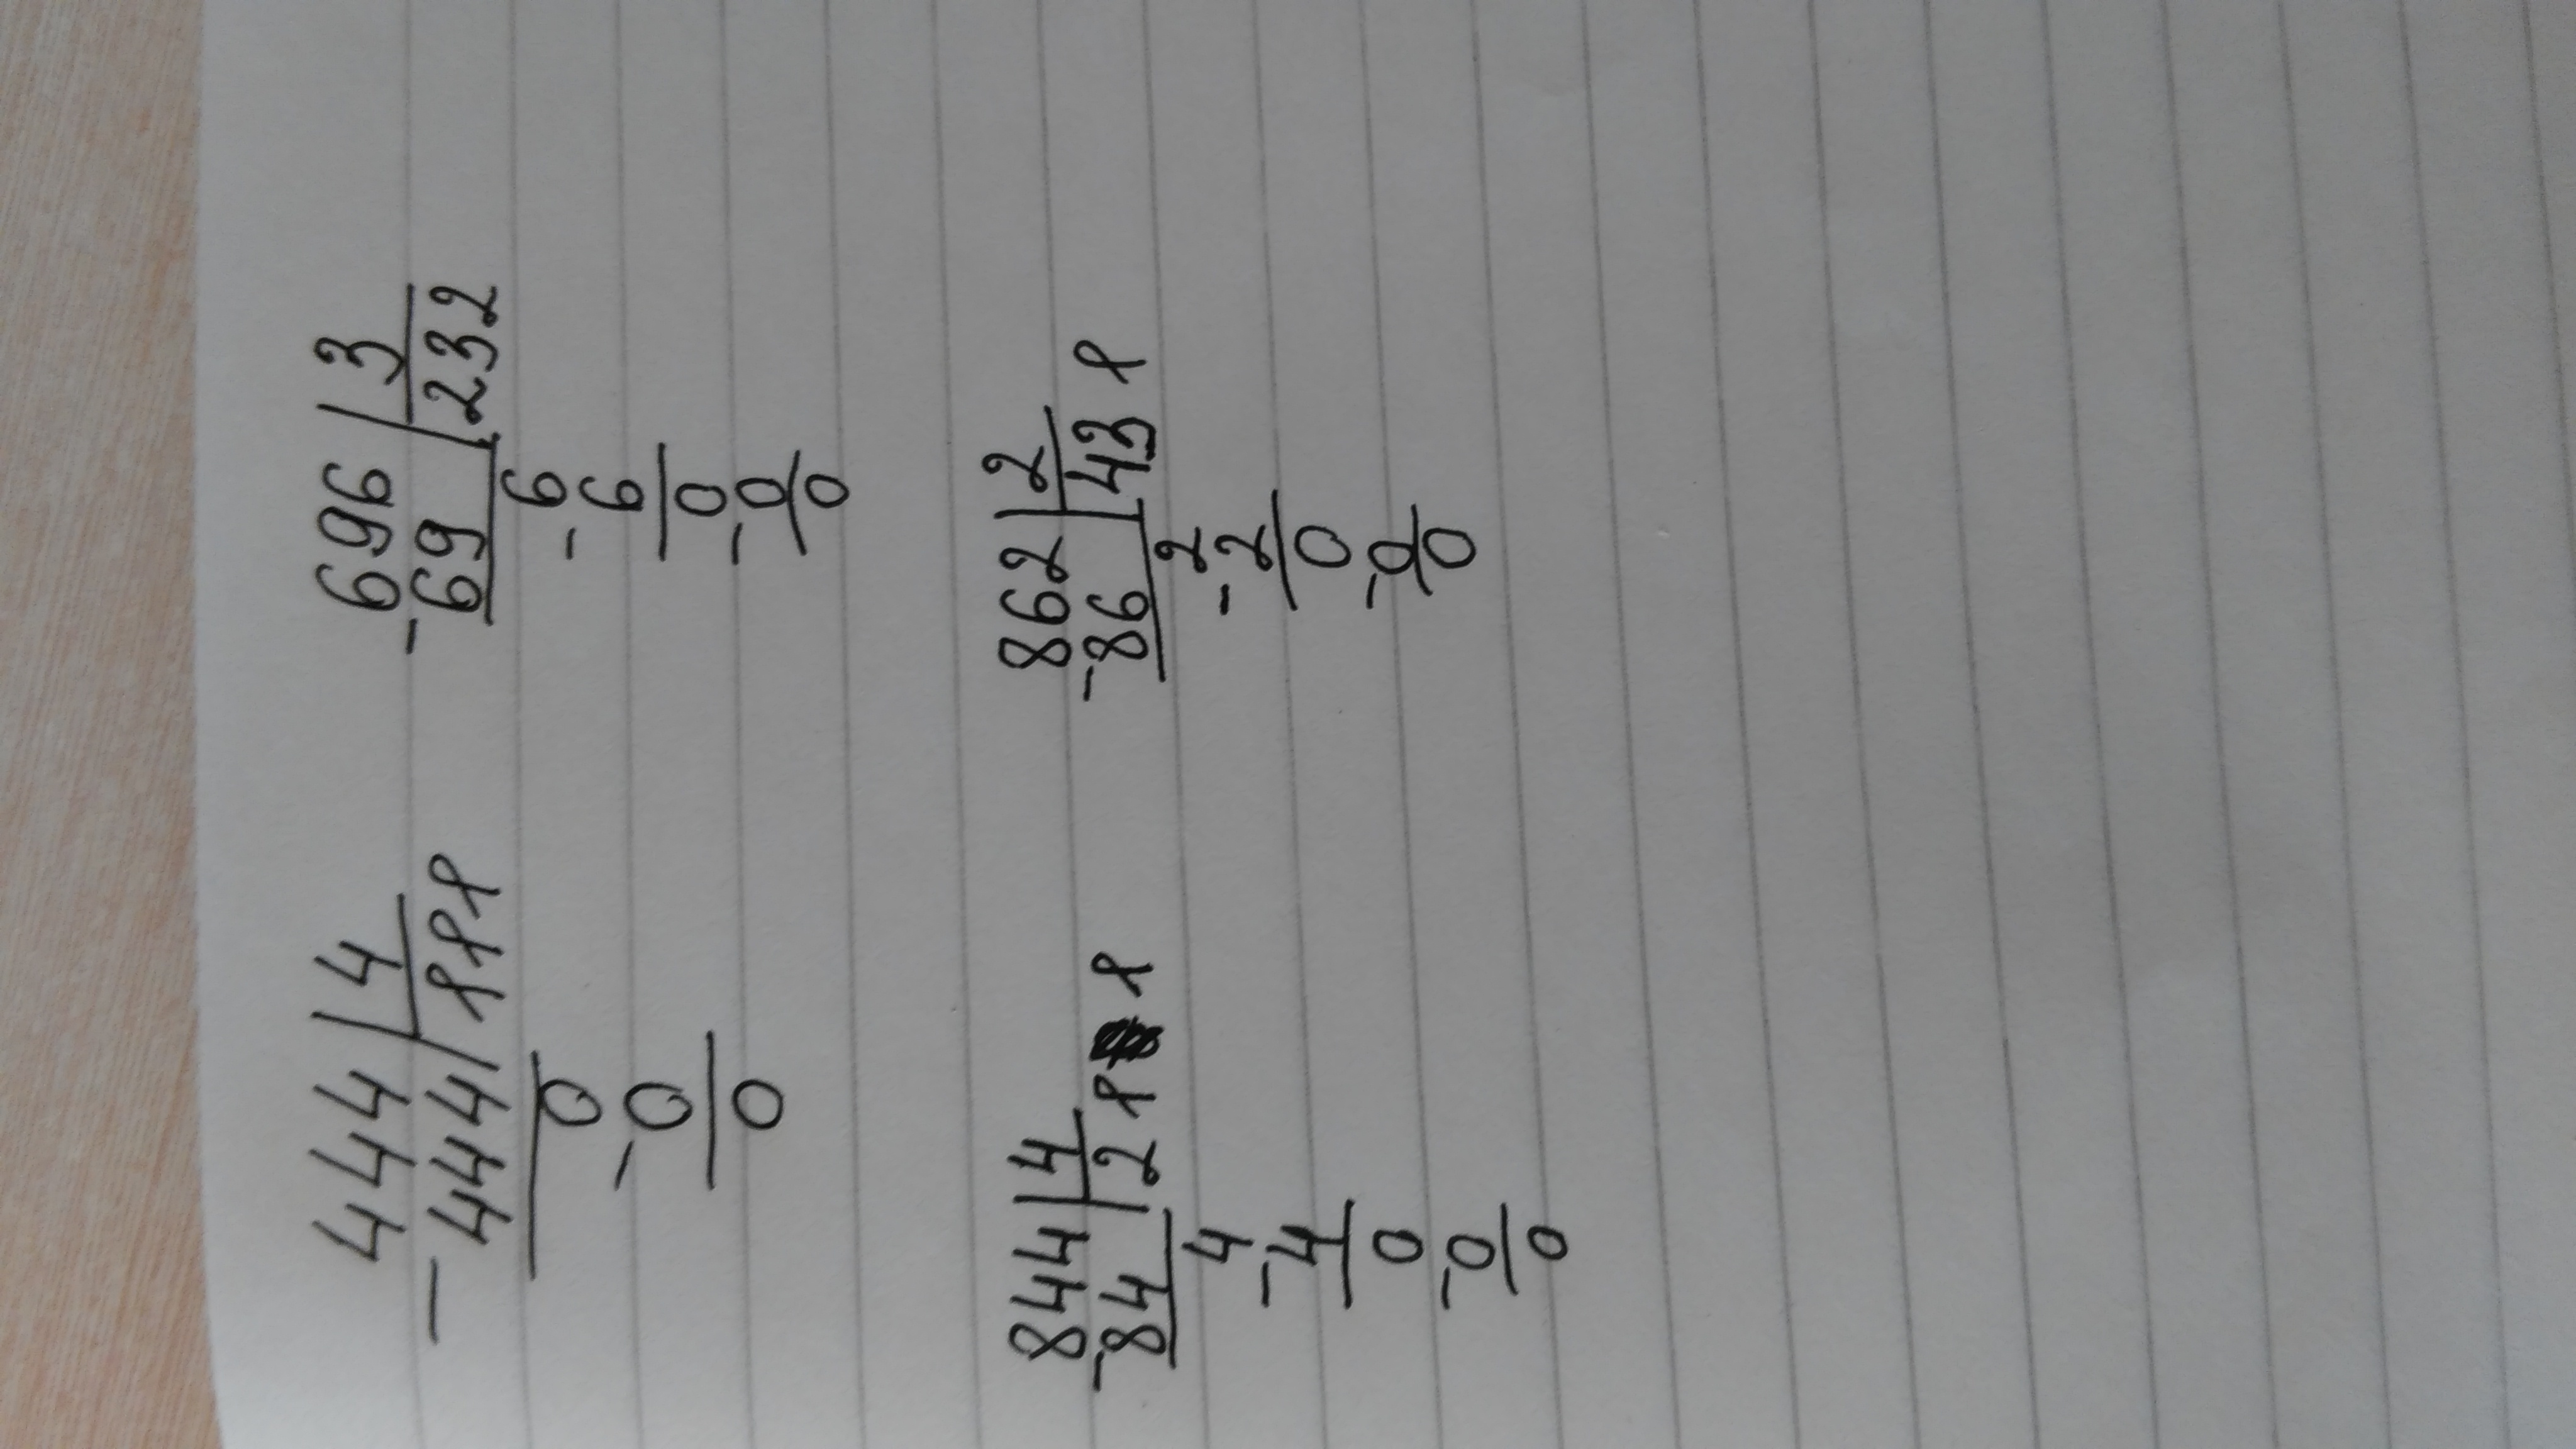 444 | 4
- 444 | 111
0
- 0
0
696 | 3
- 69 | 232
6
- 6
0
- 0
0
844 | 4
- 84 | 21 1
4
- 4
0
- 0
0
862 | 2
- 86 | 431
2
- 2
0
- 0
0